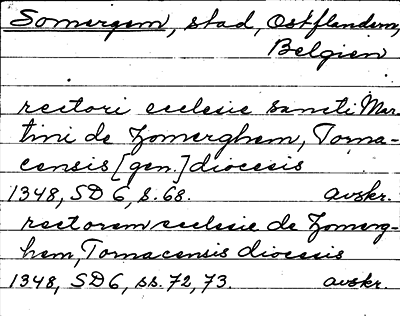 Somergem, stad, Ostflandern,
Belgien
rectori ecclesie sancti Mar-
tini de Zomerghem, Torna-
censis [gen.] diocesis
1348, SD 6, s. 68. avskr.
rectorem ecclesie de Zomerg-
hem, Tornacensis diocesis
1348, SD 6, ss. 72, 73. avskr.